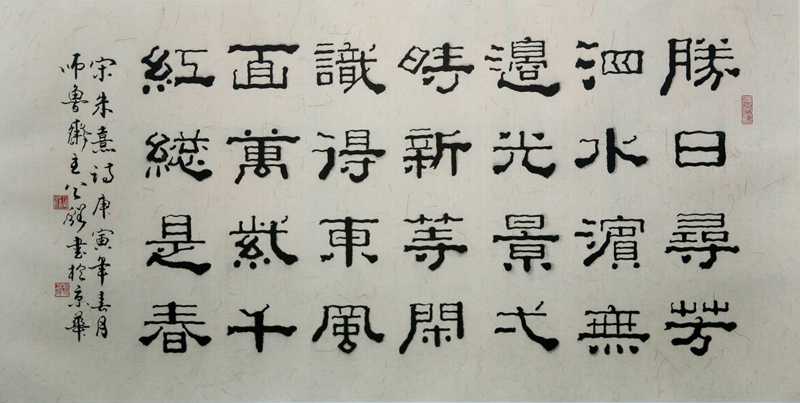 勝日尋芳
泗水濱無
邊光景弌
時新等閑
識得東風
面萬紫千
紅緫是春
宋朱熹诗庚寅年春月
师魯齋主 書於京華